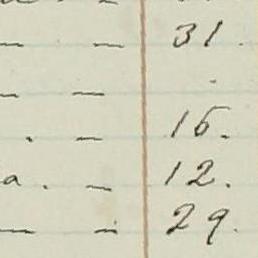 — — 31.
— —
. — 15.
a. — 12.
— . 29.